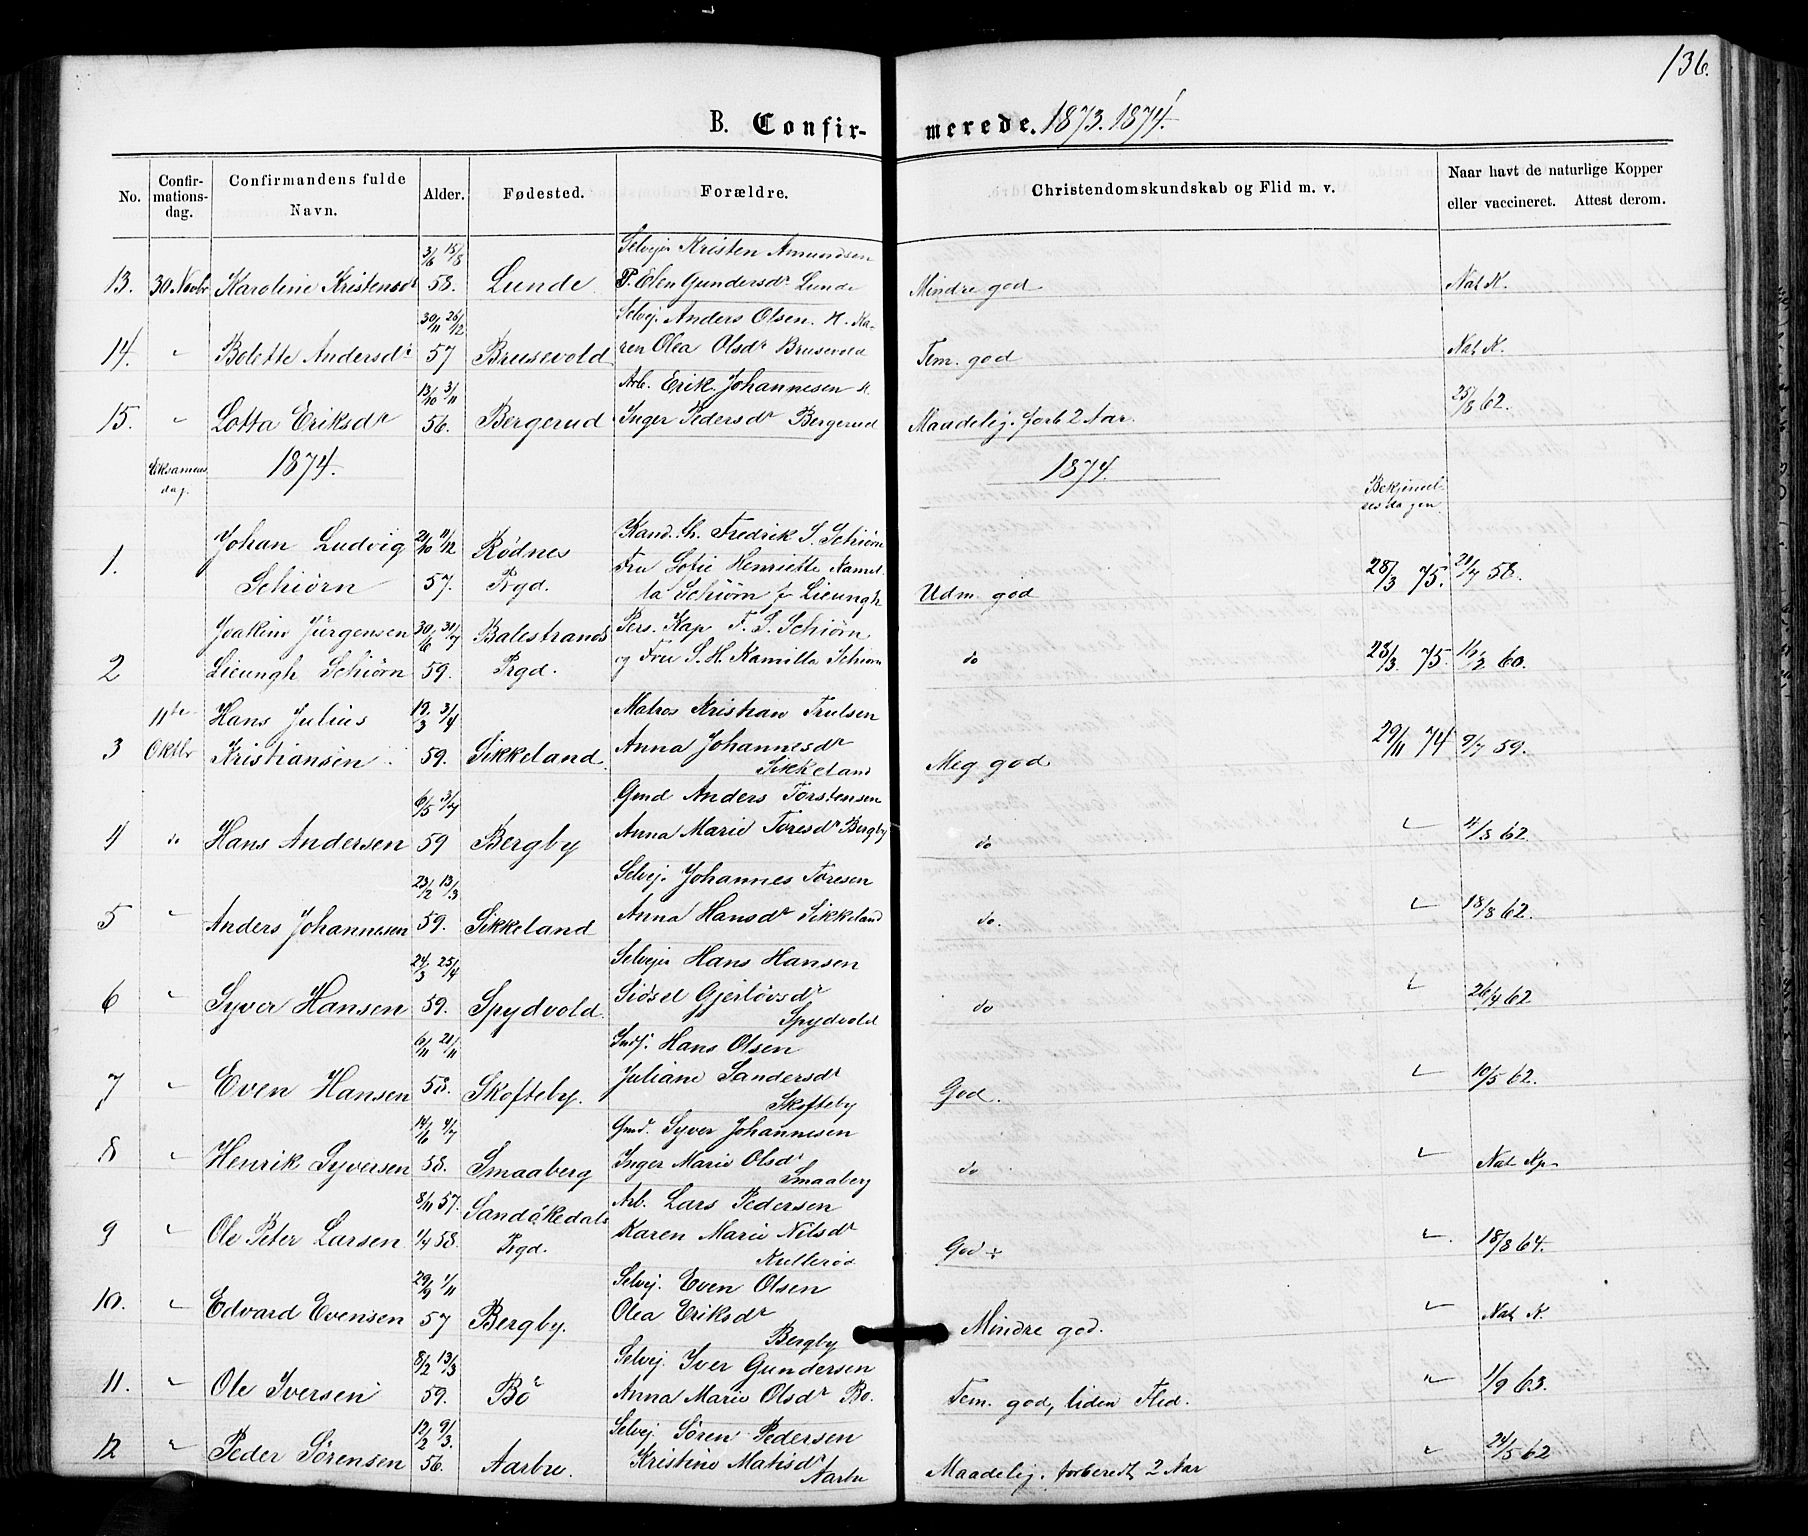 136.
B. Confirmerede. 1873. 1874.
No. Confirmationsdag. Confirmandens fulde Navn. Alder. Fødested. Forældre. Christendomskundskab og Flid m. v. Naar havt de naturlige Kopper eller vaccineret. Attest derom.
3/6 15/8 Selvejer Kristen Amundsen
13. 30. Novbr Karoline Kristensdr 58. Lunde P. Elen Gundersdr Lunde Mindre god Nat K.
30/11 26/12 Selvej. Anders Olsen. K. Ka-
14. " Bolette Andersdr 57 Brusevold ren Olea Olsdr Brusevold Tem. god Nat K.
13/10 3/11 Arb. Erik Johannesen K.
15. " Lotta Eriksdr 56. Bergerud Inger Pedersdr Bergerud Maadelig. forb 2 Aar. 25/8 62.
Eksamens dag. 1874. 1874. Bekjendelsesdagen
Johan Ludvig 21/10 11/12 Rødnes Kand. th. Fredrik S. Schiørn
1. Schiørn 57. Prgd. Fru Sofie Henriette Kamilla Schiørn f. Lieungh Udm. god 28/3 75. 21/7 58.
Joakim Jürgensen 30/6 31/7 Balestrands Pers. Kap F. S. Schiørn
2 Lieungh Schiørn 59. Prgd. og Fru S. H. Kamilla Schiørn do 28/3. 75. 16/2 60.
11te Hans Julius 19/3 3/4 Matros Kristian Trulsen
3 Oktbr Kristiansen 59. Sikkeland. Anna Johannesdr Sikkeland Meg god 29/11 74 9/7 59.
6/5 3/7 Gmd Anders Torstensen
4 do Hans Andersen 59 Bergby Anna Marie Toresdr Bergby do " 4/8 62.
23/2 13/3 Selvej. Johannes Toresen
5 " Anders Johannesen 59. Sikkeland Anna Hansdr Sikkeland do. " 18/8 62.
24/3 25/4 Selvejer Hans Hansen
6 " Syver Hansen 59. Spydvold. Siøsel Gjerløvsdr Spydvold do " 26/4 62
6/11 21/11 Indf. Hans Olsen
7 " Even Hansen 58. Skofteby. Juliane Sandersdr Skofteby God. " 10/5 62.
14/6 4/7 Gmd. Syver Johannesen
8 " Henrik Syversen 58. Smaaberg Inger Marie Olsdr Smaaberg do " Nat Kp
8/11 57. Sandökedals Arb. Lars Pedersen
9 " Ole Peter Larsen 1/4 58. Prgd. Karen Marie Nilsdr Kullerød God ÷ " 18/8 64.
29/9 1/11 Selvej. Even Olsen
10. " Edvard Evensen 57 Bergby. Olea Eriksdr Bergby Mindre god. " Nat K.
8/2 13/3 Selvej. Iver Gundersen
11. " Ole Iversen 59. Bö Anna Marie Olsdr Bø. Tem. god, liden Flid. " 1/9 63.
12/2 9/3. Selvej. Sören Pedersen
12 " Peder Sörensen 56. Aarbu. Kristine Matisdr Aarbu Maadelig. forberedt 2 Aar " 24/5 62